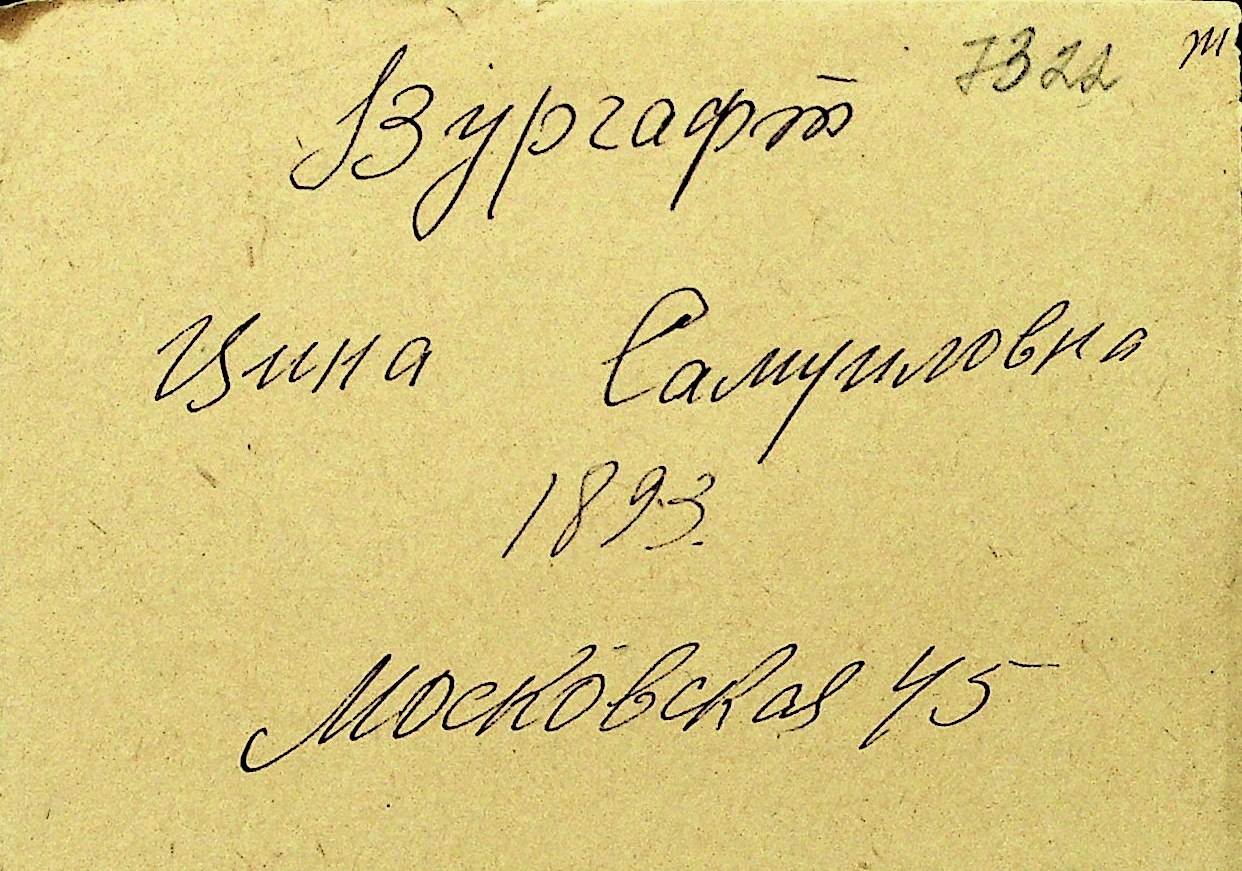 7322 т
Вургафт
Цина Самуиловна
1893.
Московская 45